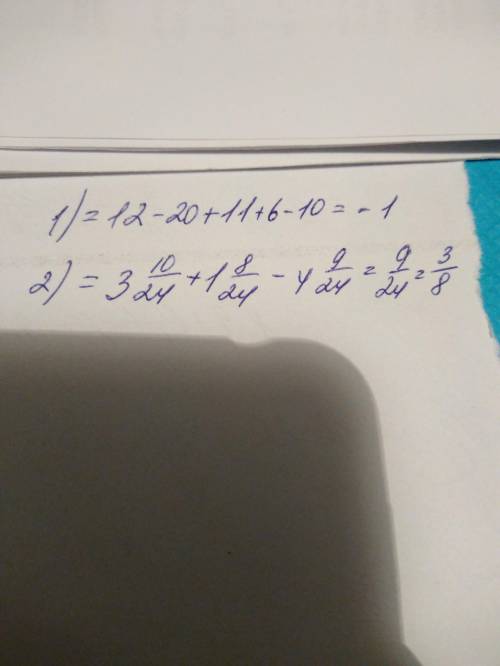 1) = 12 - 20 + 11 + 6 - 10 = - 1
2) = 3 10/24 + 1 8/24 - 4 9/24 = 9/24 = 3/8